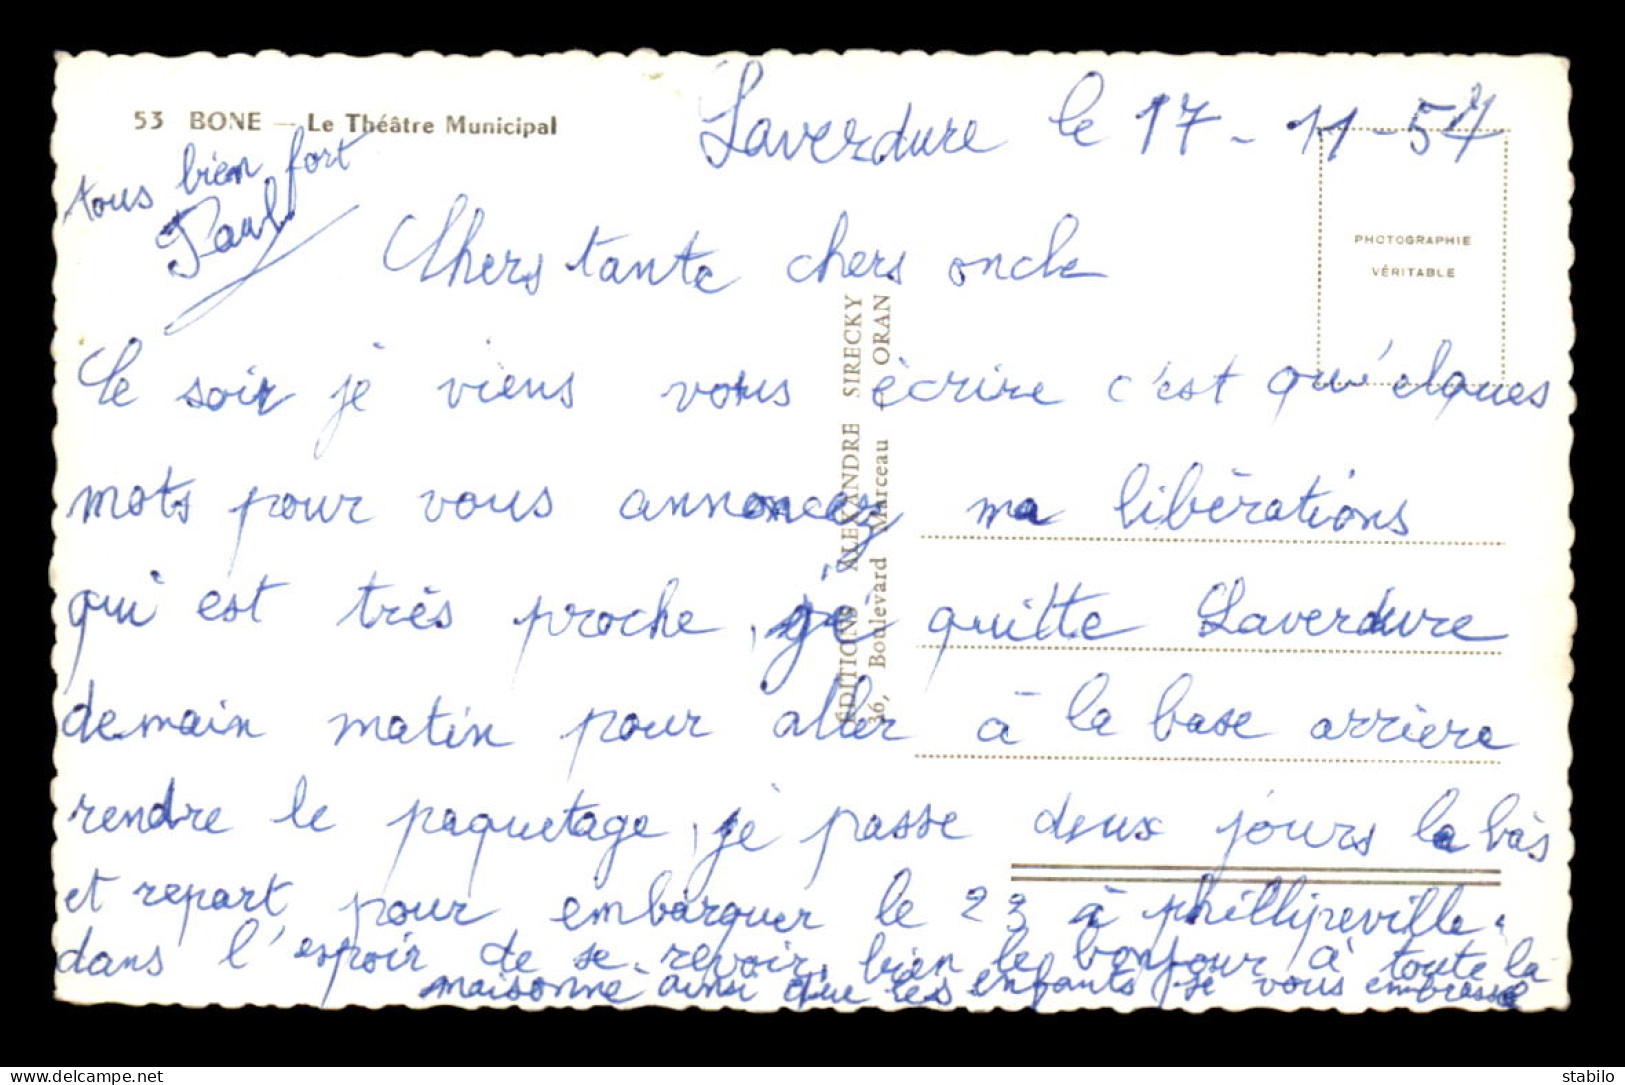 53 BONE — Le Théâtre Municipal
Laverdure le 17-11-57
Chers tante chers oncle
PHOTOGRAPHIE
VÉRITABLE
ÉDITIONS ALEXANDRE SIRECKY
36, Boulevard Marceau - ORAN
Ce soir je viens vous écrire c'est qu'elques
mots pour vous annoncez ma libérations
qui est trés proche, je quitte Laverdure
demain matin pour aller à la base arriere
rendre le paquetage, je passe deux jours la bàs
et repart pour embarquer le 23 à phillipeville.
dans l'espoir de se revoir, bien le bonjour à toute la
maisonné ainsi que les enfants je vous embrasse
tous bien fort
Paul
stabilo